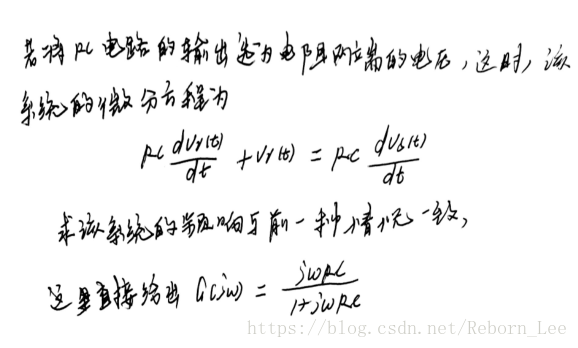 若将RC电路的输出选为电阻两端的电压，这时，该
系统的微分方程为
RC dVr(t)/dt + Vr(t) = RC dVs(t)/dt
求该系统的频响与前一种情况一致，
这里直接给出 G(jω) = jωRC / 1+jωRC
https://blog.csdn.net/Reborn_Lee